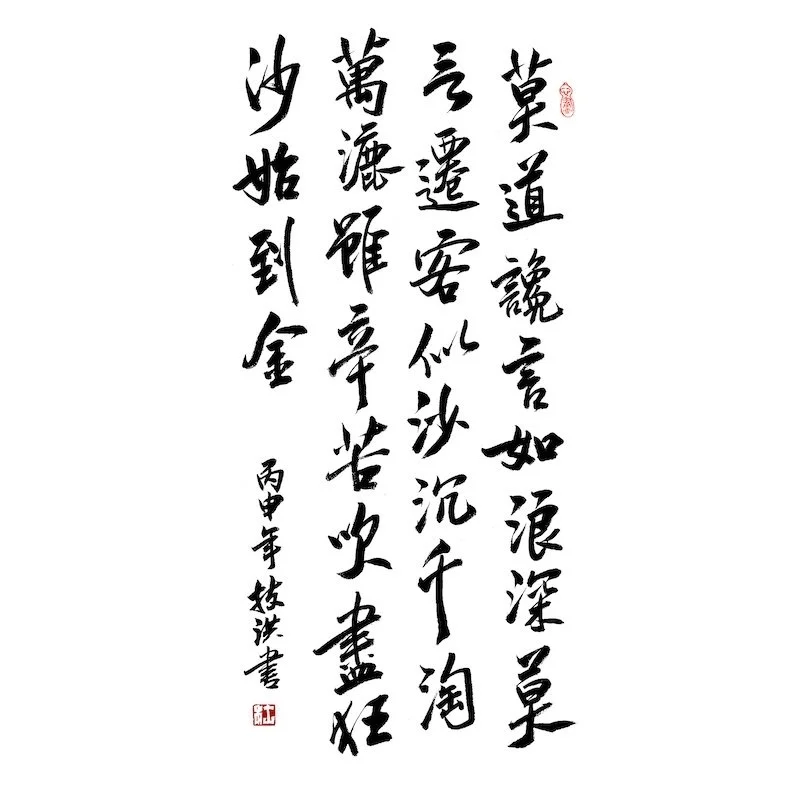 莫道讒言如浪深莫
言遷客似沙沉千淘
萬漉雖辛苦吹盡狂
沙始到金
丙申年技洪書